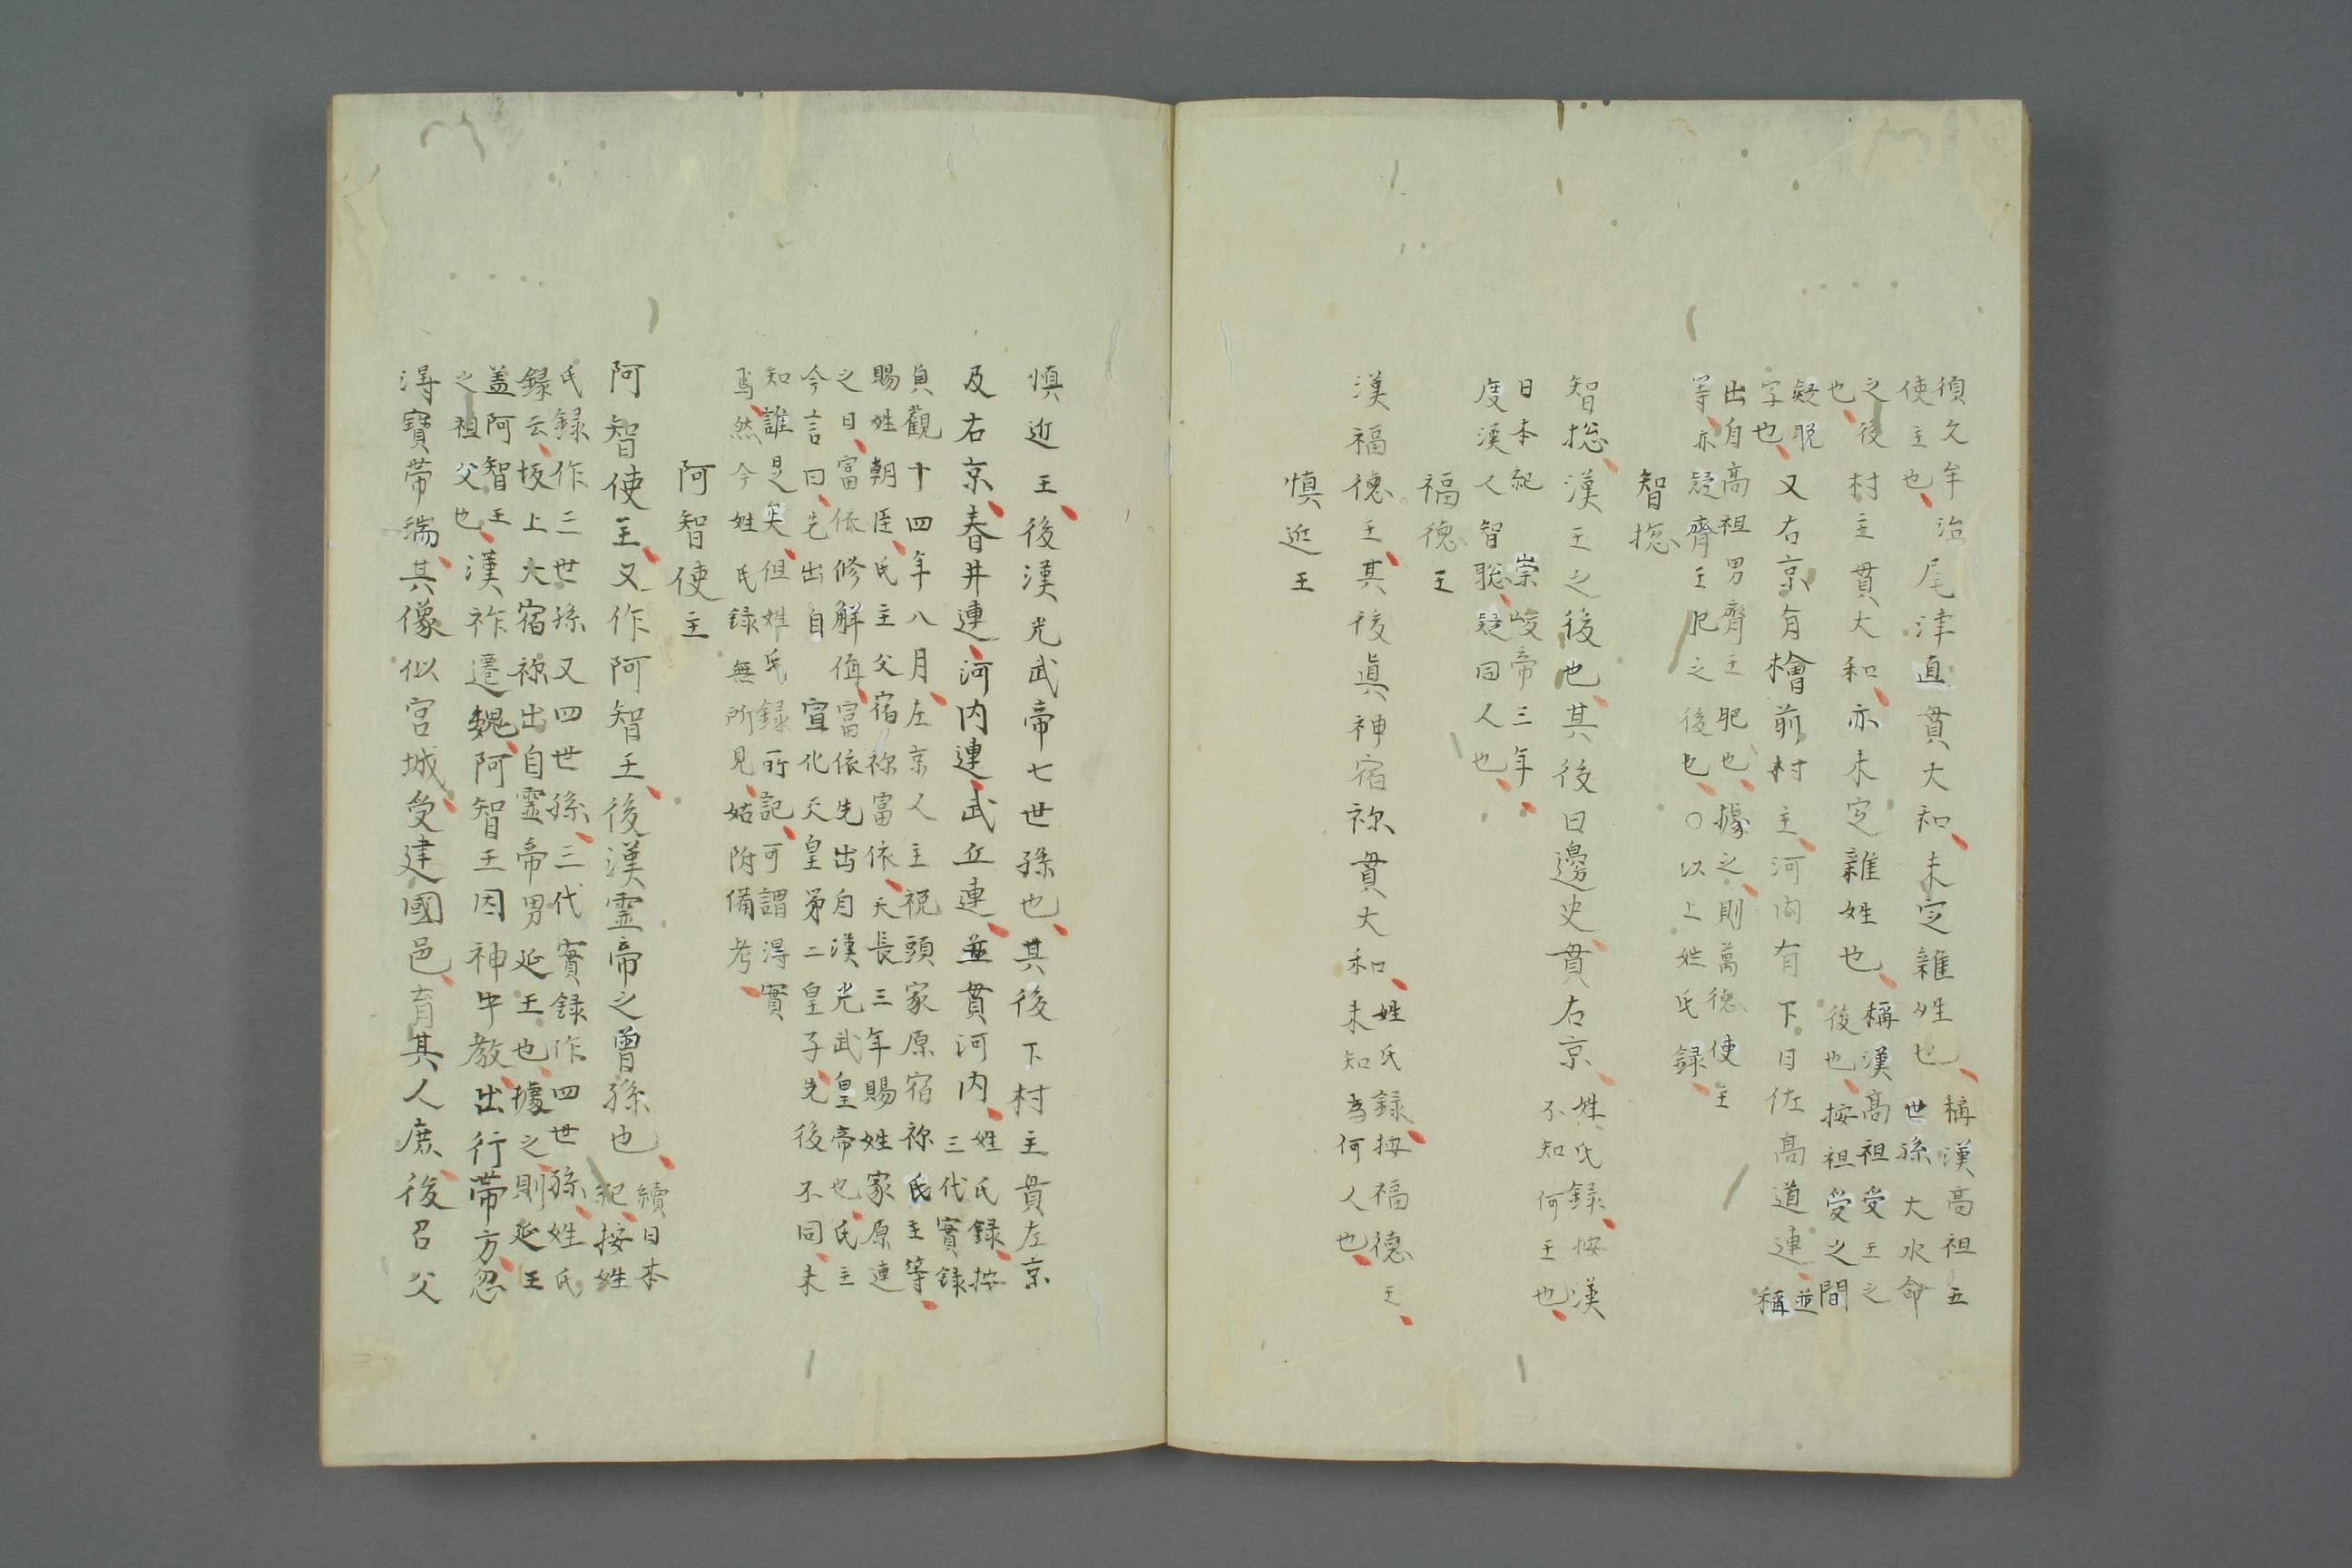 須久牟治
使主也
尾津直貫大和未定雜姓也
稱漢高祖五
世孫大水命
之後
也
村主貫大和亦未定雜姓也
稱漢高祖受王之
後也按祖受之間
疑脱
字也
又右京有檜前村主河内有下日佐高道連
並
稱
出自高祖男齊王肥也據之則萬德使主
等亦疑齊王肥之後也○以上姓氏録
智捴
智捴漢王之後也其後曰邊史貫右京
姓氏録按漢
不知何王也
日本紀崇峻帝三年
度漢人智聡疑同人也
福德王
漢福德王其後眞神宿祢貫大和
姓氏録按福德王
未知為何人也
慎近王
慎近王後漢光武帝七世孫也其後下村主貫左京
及右京春井連河内連武丘連並貫河内
姓氏録按
三代實録
貞觀十四年八月左京人主税頭家原宿祢氏主等
賜姓朝臣氏主父宿祢富依天長三年賜姓家原連
之日富依修解偁富依先出自漢光武皇帝也氏主
今言曰先出自宣化天皇第二皇子先後不同未
知誰是矣但姓氏録所記可謂得實
焉然今姓氏録無所見姑附備考
阿智使主
阿智使主又作阿智王後漢霊帝之曽孫也
續日本
紀按姓
氏録作三世孫又四世孫三代實録作四世孫姓氏
録云坂上大宿祢出自霊帝男延王也據之則延王
盖阿智王
之祖父也
漢祚遷魏阿智王因神牛教出行帶方忽
得寳帶瑞其像似宮城受建國邑育其人庶後召父